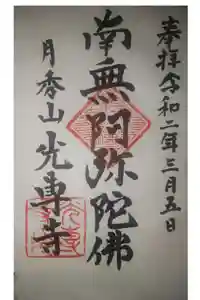 奉拝 令和二年三月五日
南無阿弥陀佛
月秀山 光専寺